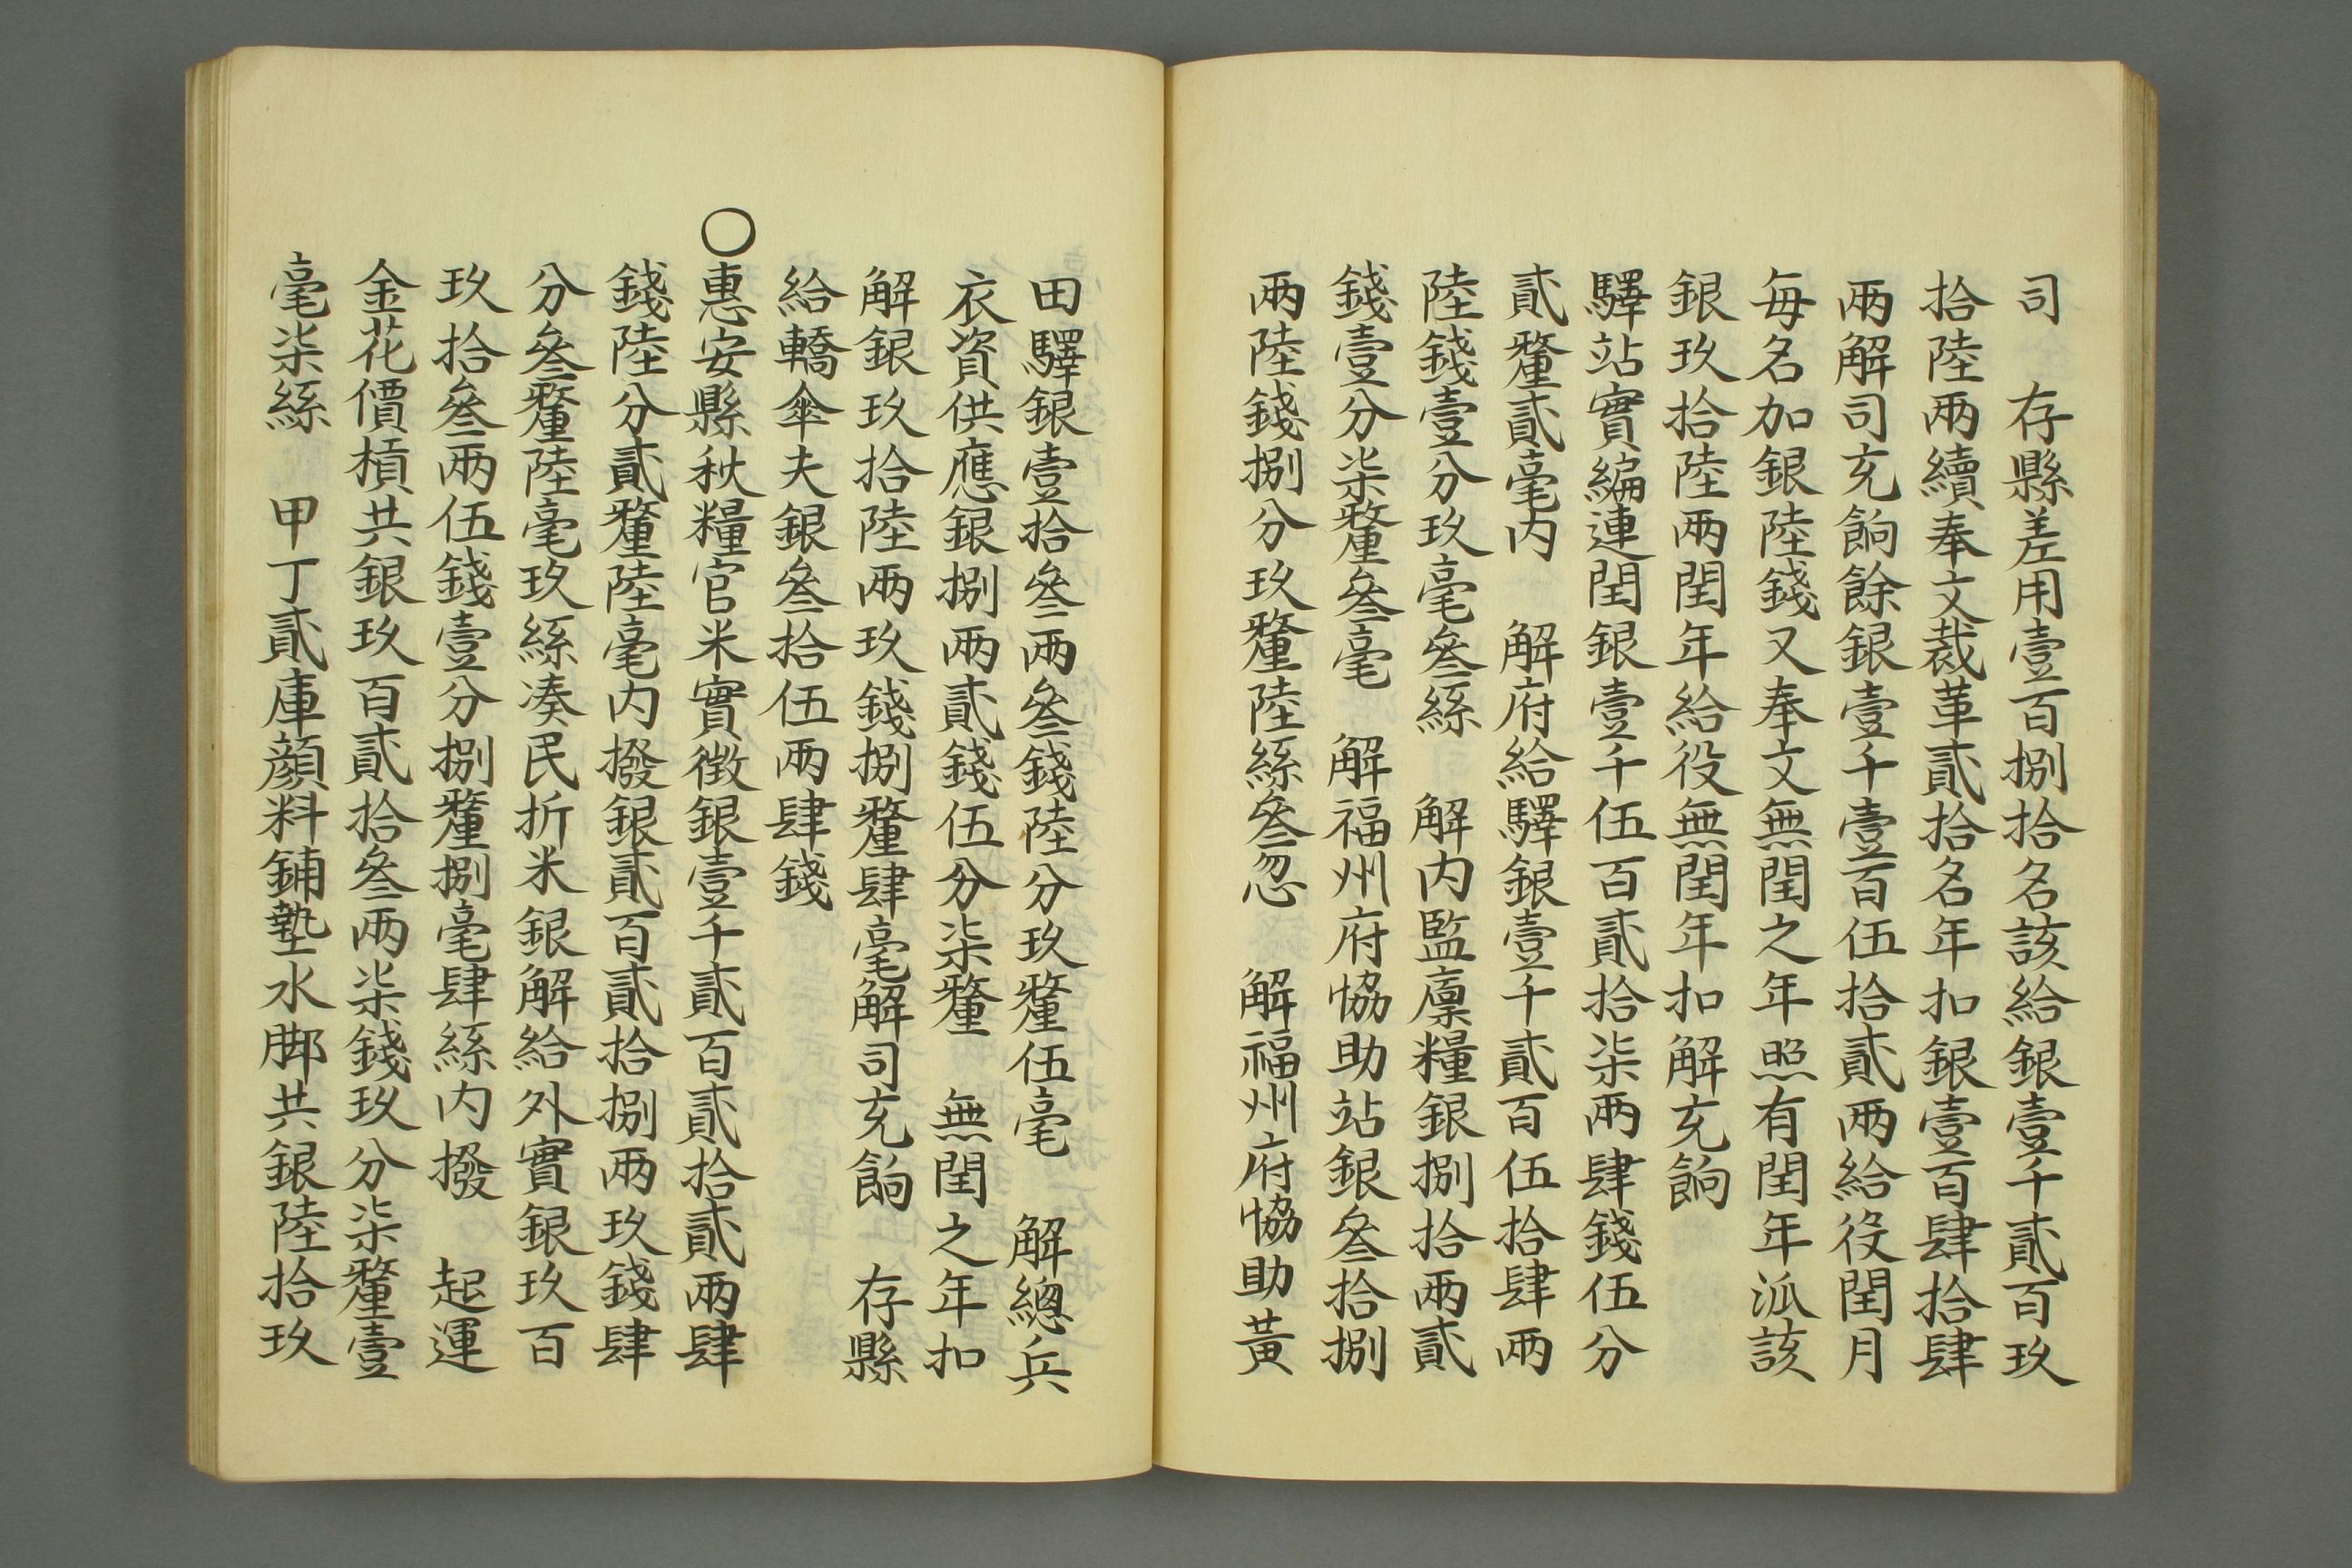 司　存縣差用壹百捌拾名該給銀壹千貳百玖
拾陸兩續奉文裁革貳拾名年扣銀壹百肆拾肆
兩解司充餉餘銀壹千壹百伍拾貳兩給役閏月
每名加銀陸錢又奉文無閏之年照有閏年派該
銀玖拾陸兩閏年給役無閏年扣解充餉
驛站實編連閏銀壹千伍百貳拾柒兩肆錢伍分
貳釐貳毫内　解府給驛銀壹千貳百伍拾肆兩
陸錢壹分玖毫叄絲　解内監廪糧銀捌拾兩貳
錢壹分柒釐叄毫　解福州府恊助站銀叄拾捌
兩陸錢捌分玖釐陸絲叄忽　解福州府恊助黃
田驛銀壹拾叄兩叄錢陸分玖釐伍毫　解總兵
衣資供應銀捌兩貳錢伍分柒釐　無閏之年扣
解銀玖拾陸兩玖錢捌釐肆毫解司充餉　存縣
給轎傘夫銀叄拾伍兩肆錢
〇惠安縣秋糧官米實徵銀壹千貳百貳拾貳兩肆
錢陸分貳釐陸毫内撥銀貳百貳拾捌兩玖錢肆
分叄釐陸毫玖絲凑民折米銀解給外實銀玖百
玖拾叄兩伍錢壹分捌釐捌毫肆絲内撥　起運
金花價槓共銀玖百貳拾叄兩柒錢玖分柒釐壹
毫柒絲　甲丁貳庫顔料鋪墊水脚共銀陸拾玖